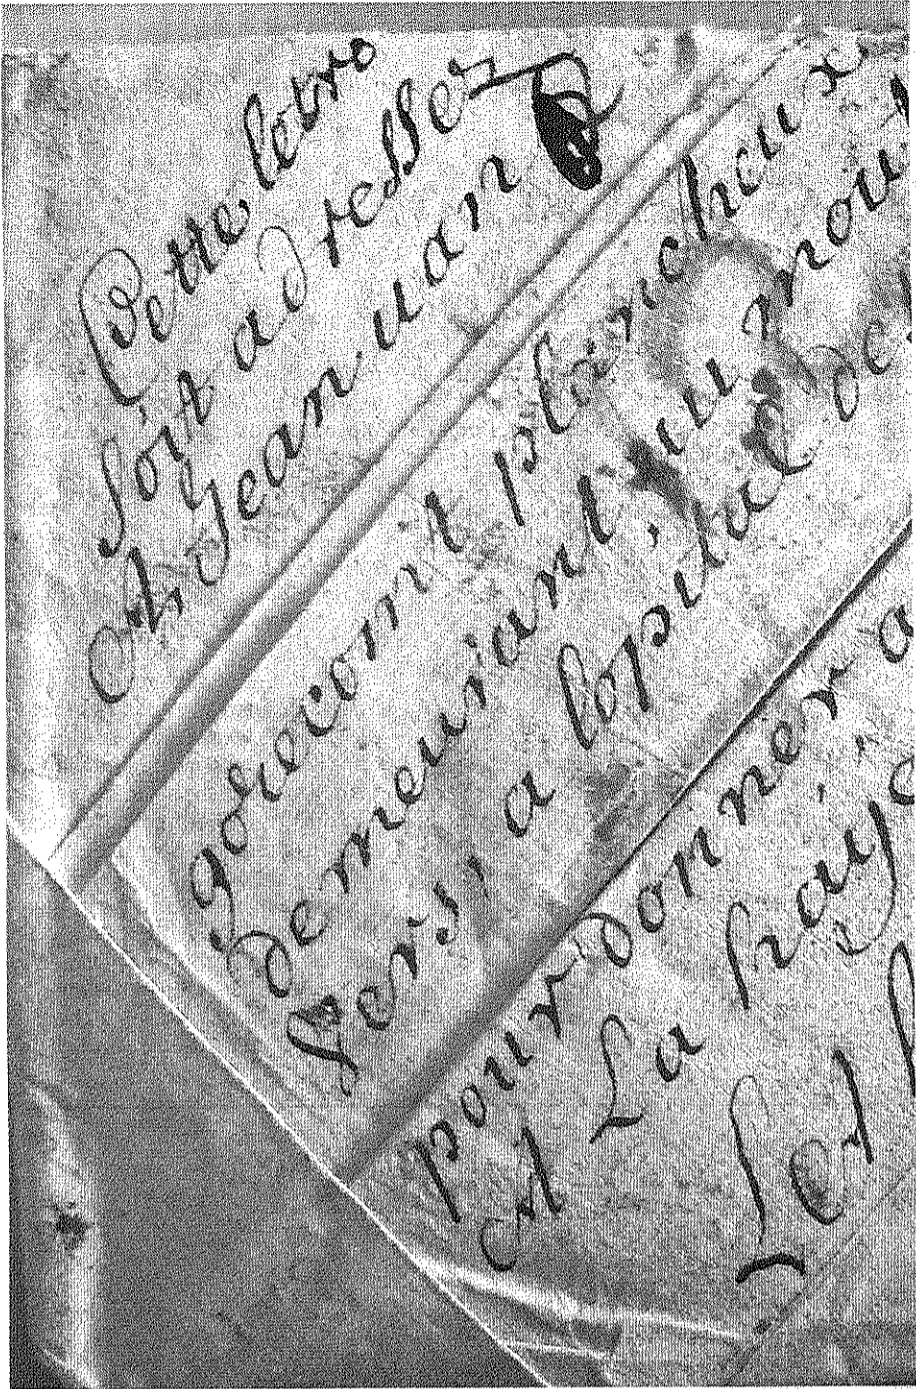 Cette lettre
soit adresser
A Jean uan
gorecom t plancheux
demeurant au mou
vers, a lopital de
pour donner a
A La haye